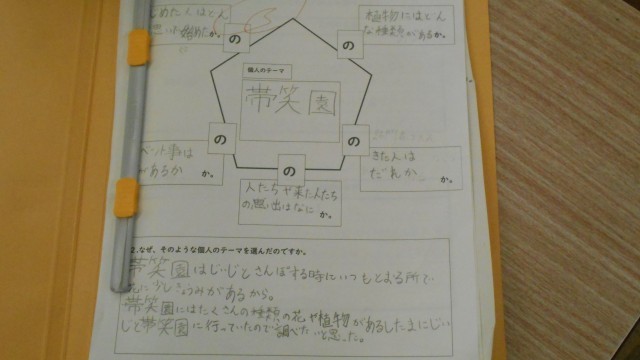 じめた人はどん
思いで始めたか。
の
の
植物にはどん
な種類があるか。
個人のテーマ
帯笑園
の
の
ベント事は
があるか か。
きた人は
だれか か。
の
人たちや来た人たち
の思い出はなに か。
2.なぜ、そのような個人のテーマを選んだのですか。
帯笑園はじいじとさんぽする時にいつもとまる所で
花に少しきょうみがあるから。
帯笑園にはたくさんの種類の花や植物があるしたまにじい
じと帯笑園に行っていたので調べたいと思った。